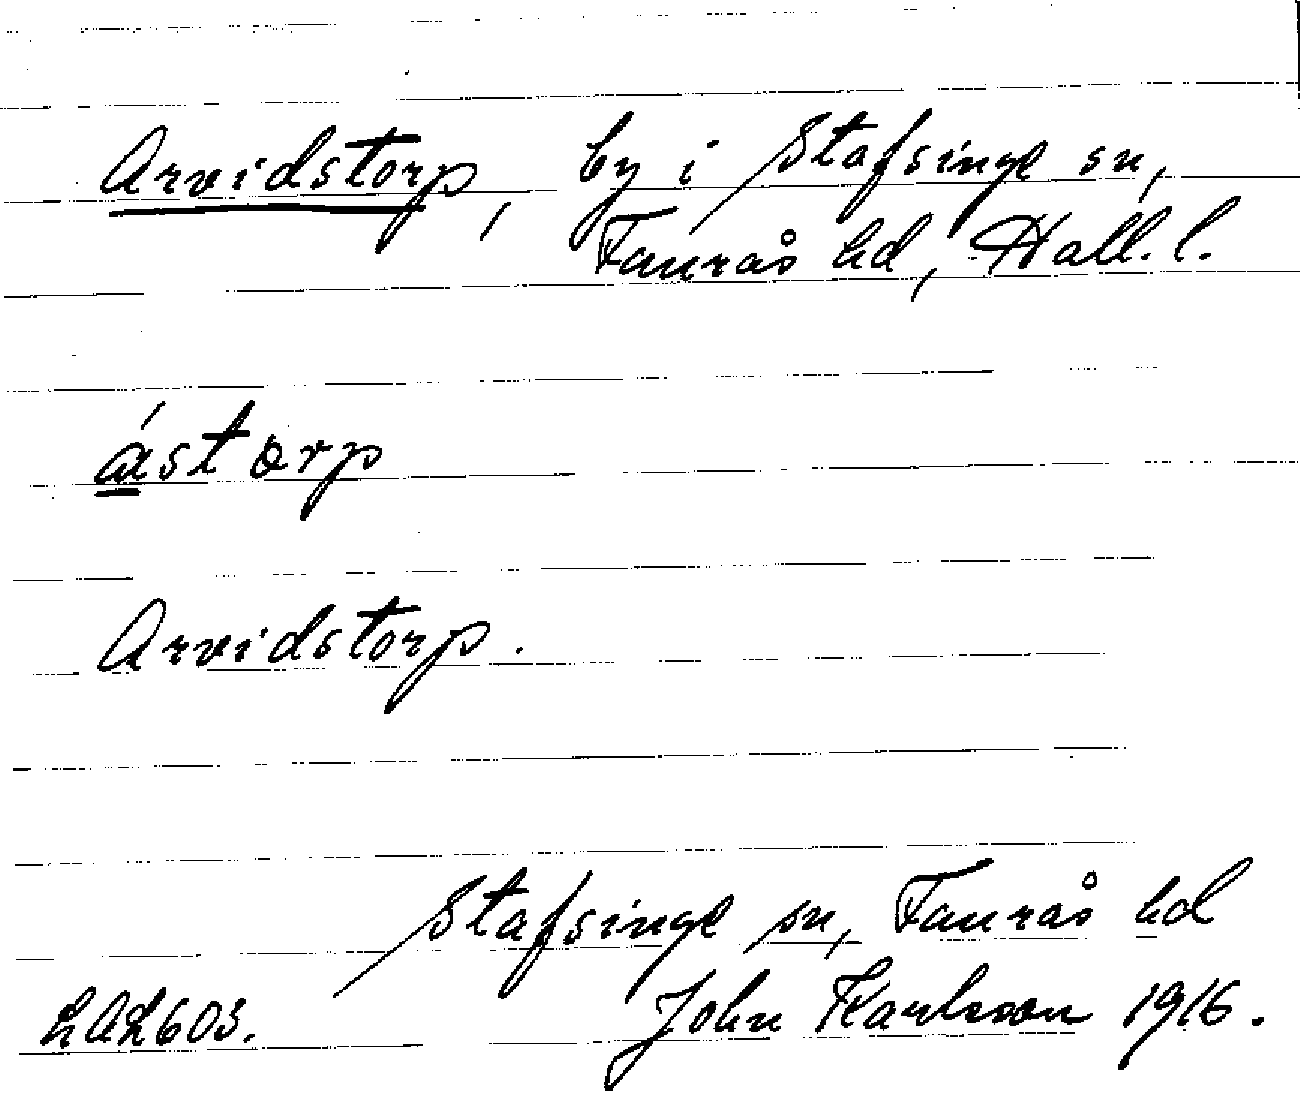 Arvidstorp, by i Stafsinge sn,
Faurås hd, Hall. l.
ástorp
Arvidstorp.
Stafsinge sn, Faurås hd
LAL603. John Karlsson 1916.